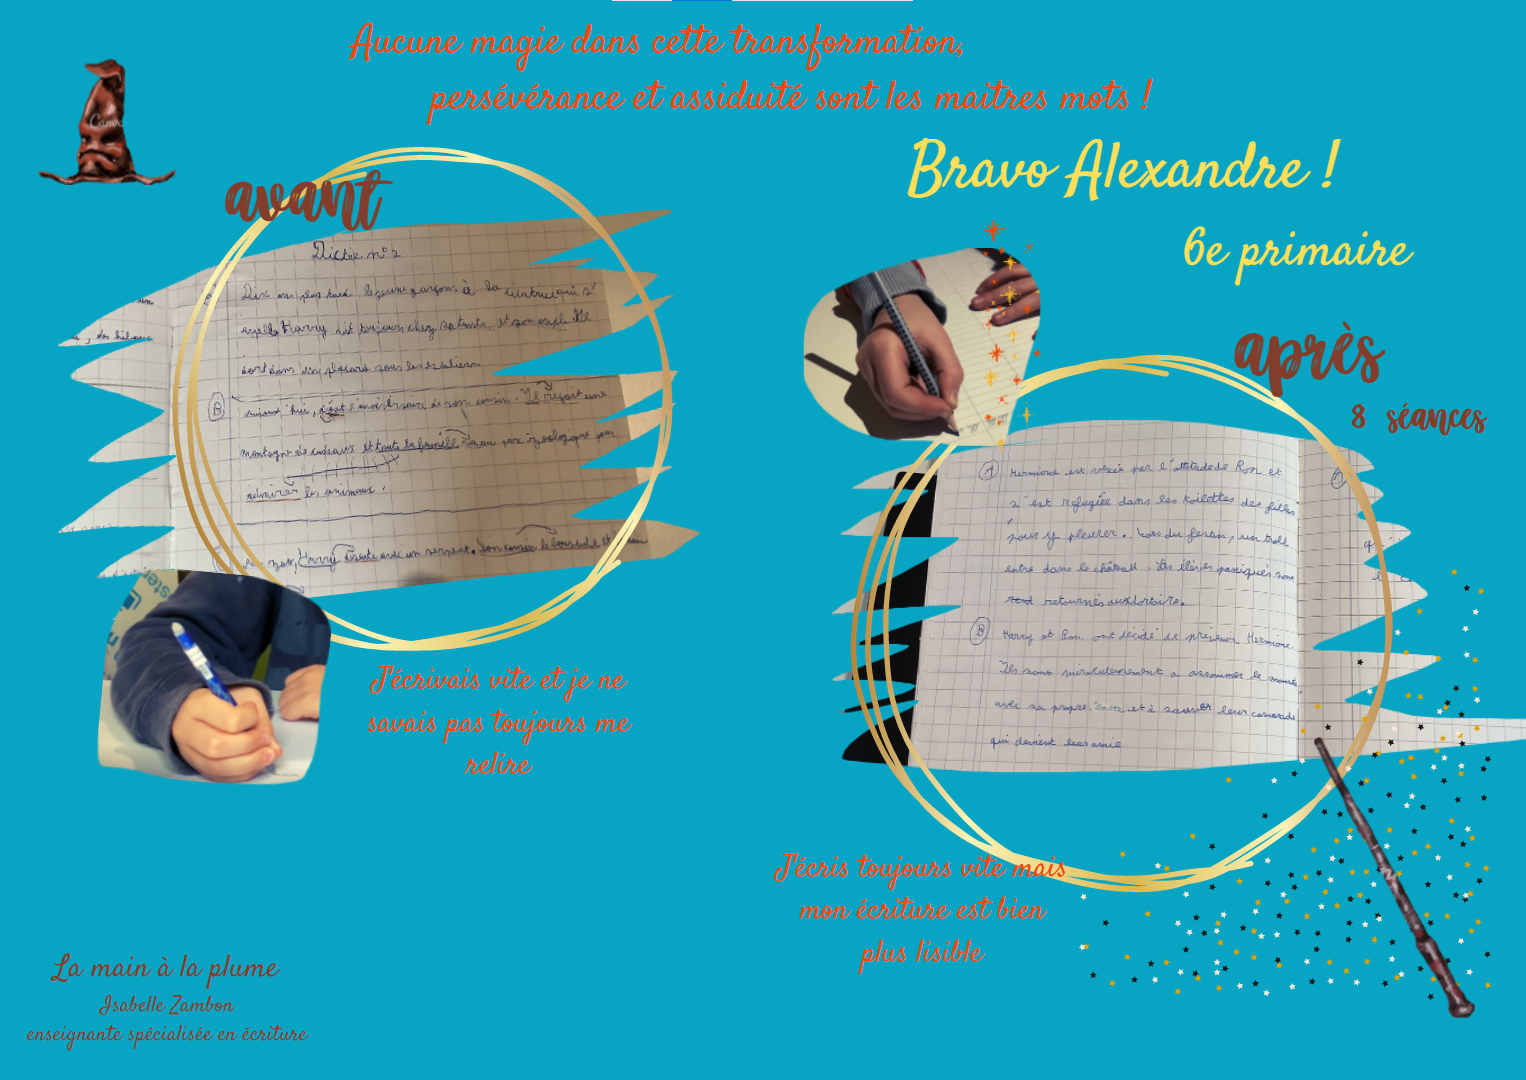 Aucune magie dans cette transformation,
persévérance et assiduité sont les maîtres mots !
Canva
Bravo Alexandre !
6e primaire
avant
Dictée n°2
Dix ans plus tard, le jeune garçon à la
Harry est toujours chez sa tante et son oncle. Il
dort dans un placard sous les escaliers.
B
c'est l'anniversaire de son cousin. Il reçoit une
montagne de cadeaux et toute la famille parc zoologique pour
admirer les animaux.
Harry avec un serpent. Son cousin le bouscule et
J'écrivais vite et je ne
savais pas toujours me
relire
après
8 séances
A Hermione est vexée par l'attitude de Ron et
s'est refugiée dans les toilettes des filles
pour y pleurer. Lors du festin, un troll
entre dans le château. Les élèves paniqués sont
retournés aux dortoirs.
B Harry et Ron ont décidé de prévenir Hermione.
Ils sont a assommer le
avec sa propre et à sauver leur camarade
qui devient leur amie
J'écris toujours vite mais
mon écriture est bien
plus lisible
La main à la plume
Isabelle Zambon
enseignante spécialisée en écriture